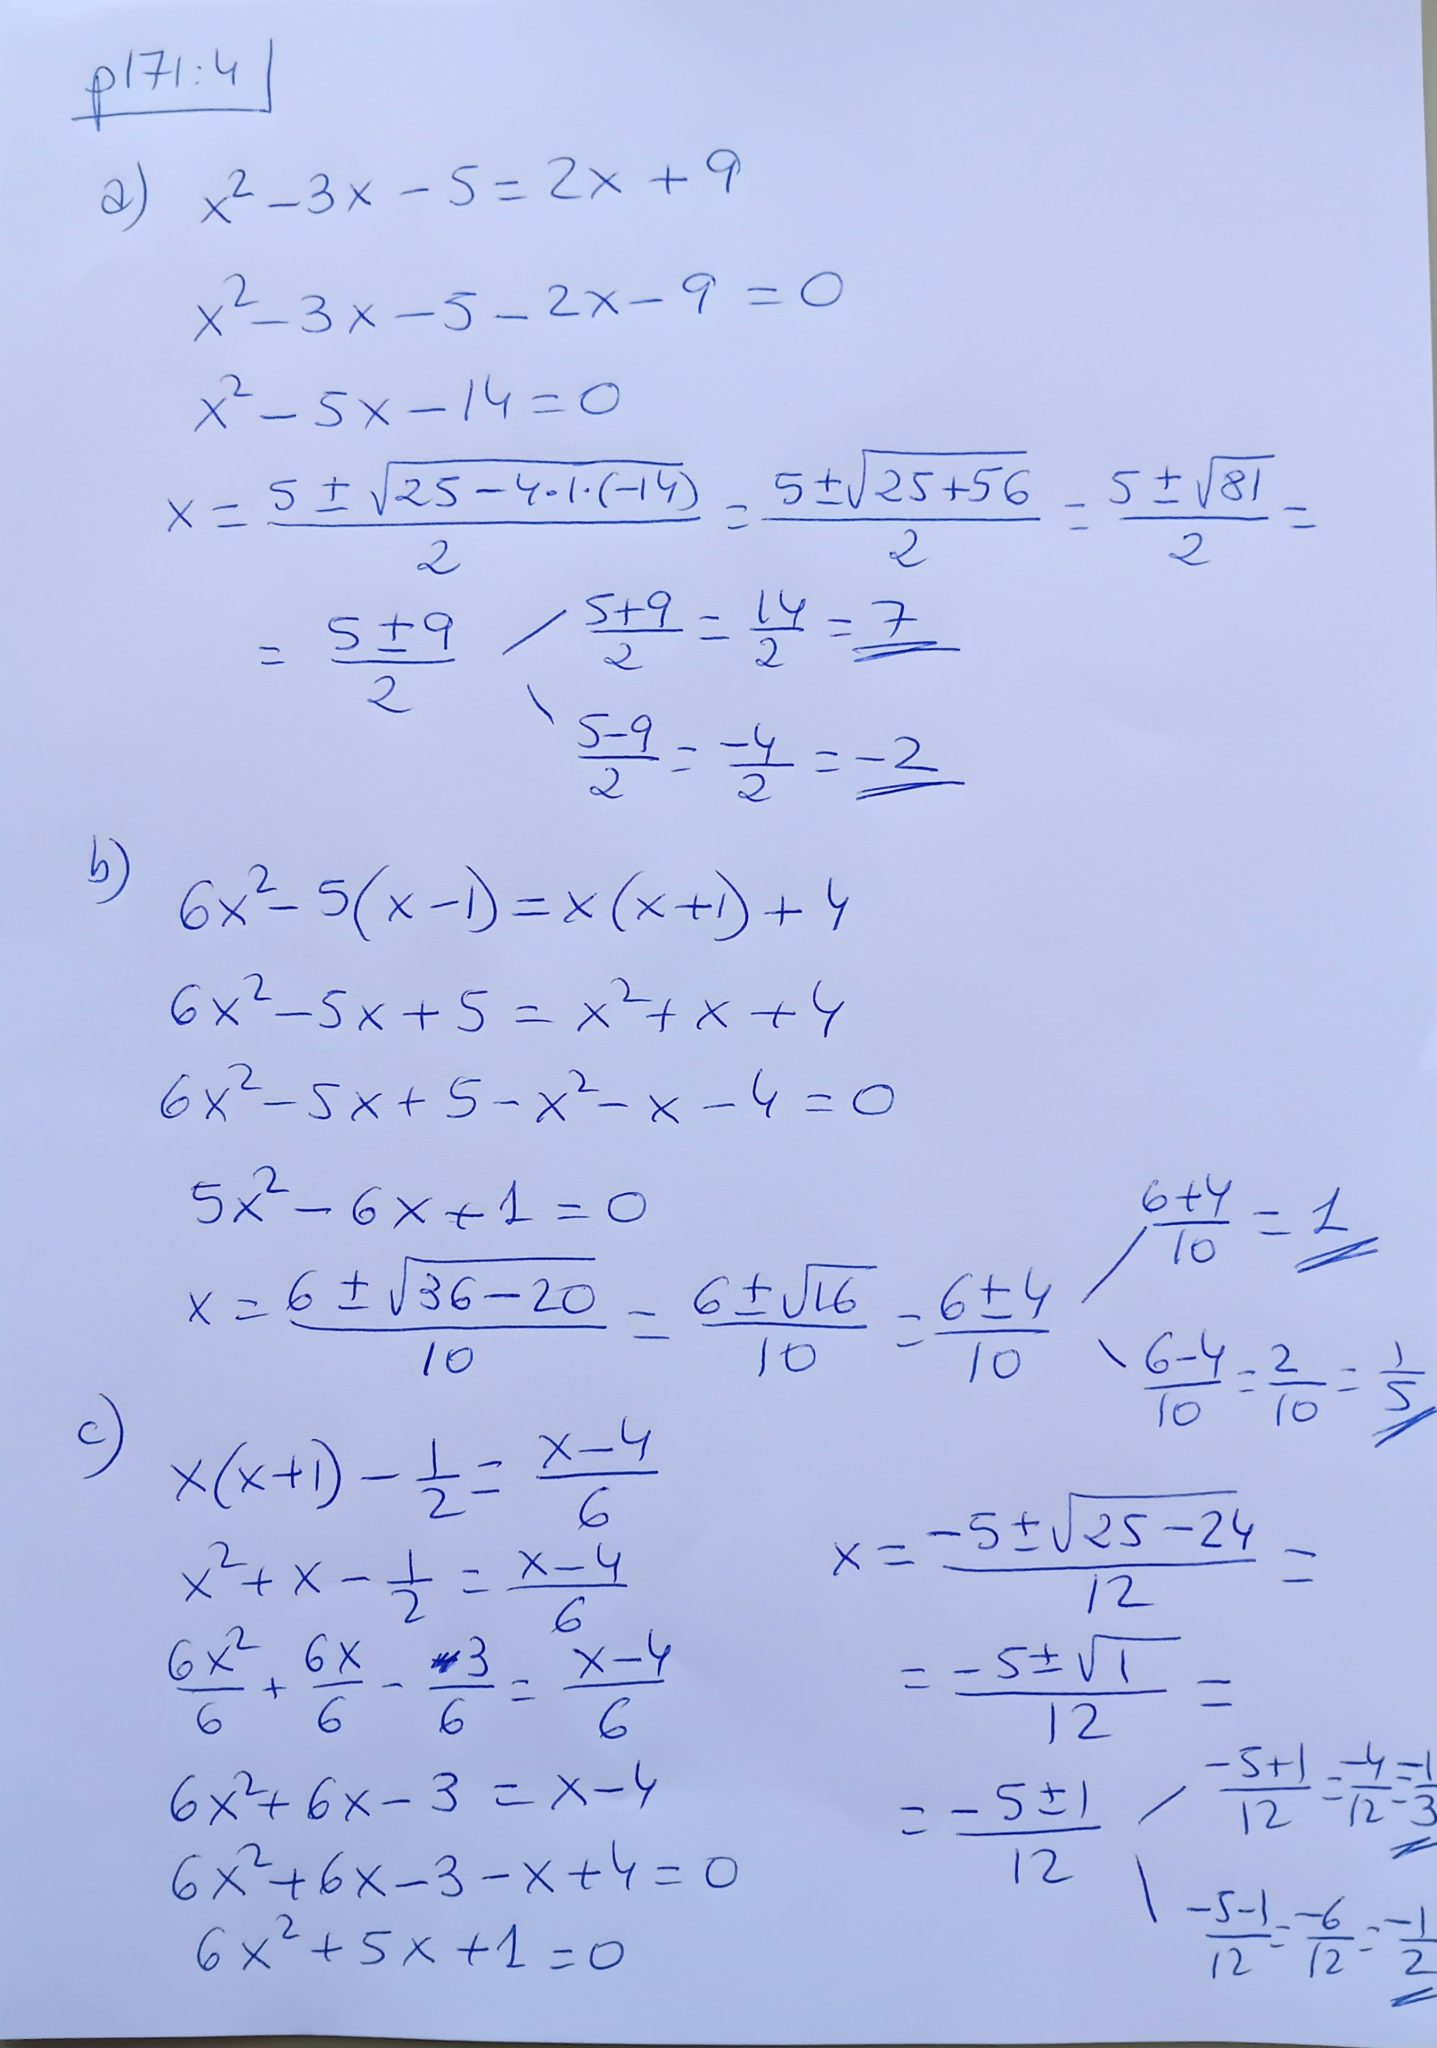 p171:4
a) x² - 3x - 5 = 2x + 9
x² - 3x - 5 - 2x - 9 = 0
x² - 5x - 14 = 0
x = (5 ± √(25 - 4·1·(-14)))/2 = (5 ± √(25+56))/2 = (5 ± √81)/2 =
= (5 ± 9)/2 / (5+9)/2 = 14/2 = 7
\ (5-9)/2 = -4/2 = -2
b) 6x² - 5(x-1) = x(x+1) + 4
6x² - 5x + 5 = x² + x + 4
6x² - 5x + 5 - x² - x - 4 = 0
5x² - 6x + 1 = 0
x = (6 ± √(36-20))/10 = (6 ± √16)/10 = (6 ± 4)/10 / (6+4)/10 = 1
\ (6-4)/10 = 2/10 = 1/5
c) x(x+1) - 1/2 = (x-4)/6
x² + x - 1/2 = (x-4)/6
6x²/6 + 6x/6 - 3/6 = (x-4)/6
6x² + 6x - 3 = x - 4
6x² + 6x - 3 - x + 4 = 0
6x² + 5x + 1 = 0
x = (-5 ± √(25-24))/12 =
= (-5 ± √1)/12 =
= (-5 ± 1)/12 / (-5+1)/12 = -4/12 = -1/3
\ (-5-1)/12 = -6/12 = -1/2